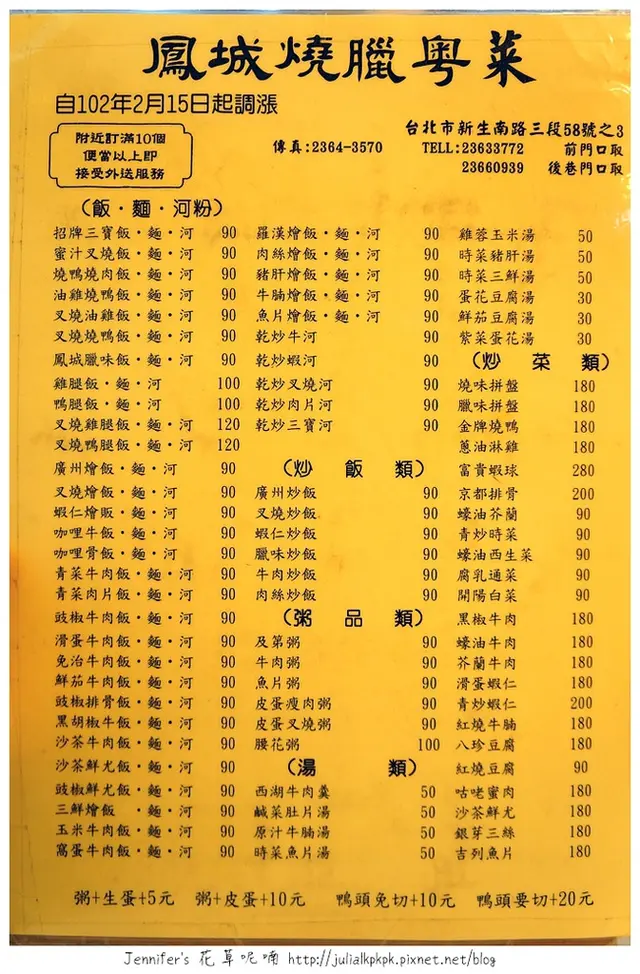 鳳城燒臘粵菜
自102年2月15日起調漲
附近訂滿10個
便當以上即
接受外送服務
傳真:2364-3570
台北市新生南路三段58號之3
TELL:23633772 前門口取
23660939 後巷門口取
(飯·麵·河粉)
招牌三寶飯·麵·河 90
蜜汁叉燒飯·麵·河 90
燒鴨燒肉飯·麵·河 90
油雞燒鴨飯·麵·河 90
叉燒油雞飯·麵·河 90
叉燒燒鴨飯·麵·河 90
鳳城臘味飯·麵·河 90
雞腿飯·麵·河 100
鴨腿飯·麵·河 100
叉燒雞腿飯·麵·河 120
叉燒鴨腿飯·麵·河 120
廣州燴飯·麵·河 90
叉燒燴飯·麵·河 90
蝦仁燴販·麵·河 90
咖哩牛飯·麵·河 90
咖哩骨飯·麵·河 90
青菜牛肉飯·麵·河 90
青菜肉片飯·麵·河 90
豉椒牛肉飯·麵·河 90
滑蛋牛肉飯·麵·河 90
免治牛肉飯·麵·河 90
鮮茄牛肉飯·麵·河 90
豉椒排骨飯·麵·河 90
黑胡椒牛飯·麵·河 90
沙茶牛肉飯·麵·河 90
沙茶鮮尤飯·麵·河 90
豉椒鮮尤飯·麵·河 90
三鮮燴飯 ·麵·河 90
玉米牛肉飯·麵·河 90
窩蛋牛肉飯·麵·河 90
羅漢燴飯·麵·河 90
肉絲燴飯·麵·河 90
豬肝燴飯·麵·河 90
牛腩燴飯·麵·河 90
魚片燴飯·麵·河 90
乾炒牛河 90
乾炒蝦河 90
乾炒叉燒河 90
乾炒肉片河 90
乾炒三寶河 90
(炒飯類)
廣州炒飯 90
叉燒炒飯 90
蝦仁炒飯 90
臘味炒飯 90
牛肉炒飯 90
肉絲炒飯 90
(粥品類)
及第粥 90
牛肉粥 90
魚片粥 90
皮蛋瘦肉粥 90
皮蛋叉燒粥 90
腰花粥 100
(湯類)
西湖牛肉羹 50
鹹菜肚片湯 50
原汁牛腩湯 50
時菜魚片湯 50
雞蓉玉米湯 50
時菜豬肝湯 50
時菜三鮮湯 50
蛋花豆腐湯 30
鮮茄豆腐湯 30
紫菜蛋花湯 30
(炒菜類)
燒味拼盤 180
臘味拼盤 180
金牌燒鴨 180
蔥油淋雞 180
富貴蝦球 280
京都排骨 200
蠔油芥蘭 90
青炒時菜 90
蠔油西生菜 90
腐乳通菜 90
開陽白菜 90
黑椒牛肉 180
蠔油牛肉 180
芥蘭牛肉 180
滑蛋蝦仁 180
青炒蝦仁 200
紅燒牛腩 180
八珍豆腐 180
紅燒豆腐 90
咕咾蜜肉 180
沙茶鮮尤 180
銀芽三絲 180
吉列魚片 180
粥+生蛋+5元 粥+皮蛋+10元 鴨頭免切+10元 鴨頭要切+20元
Jennifer's 花草呢喃 http://julialkpkpk.pixnet.net/blog